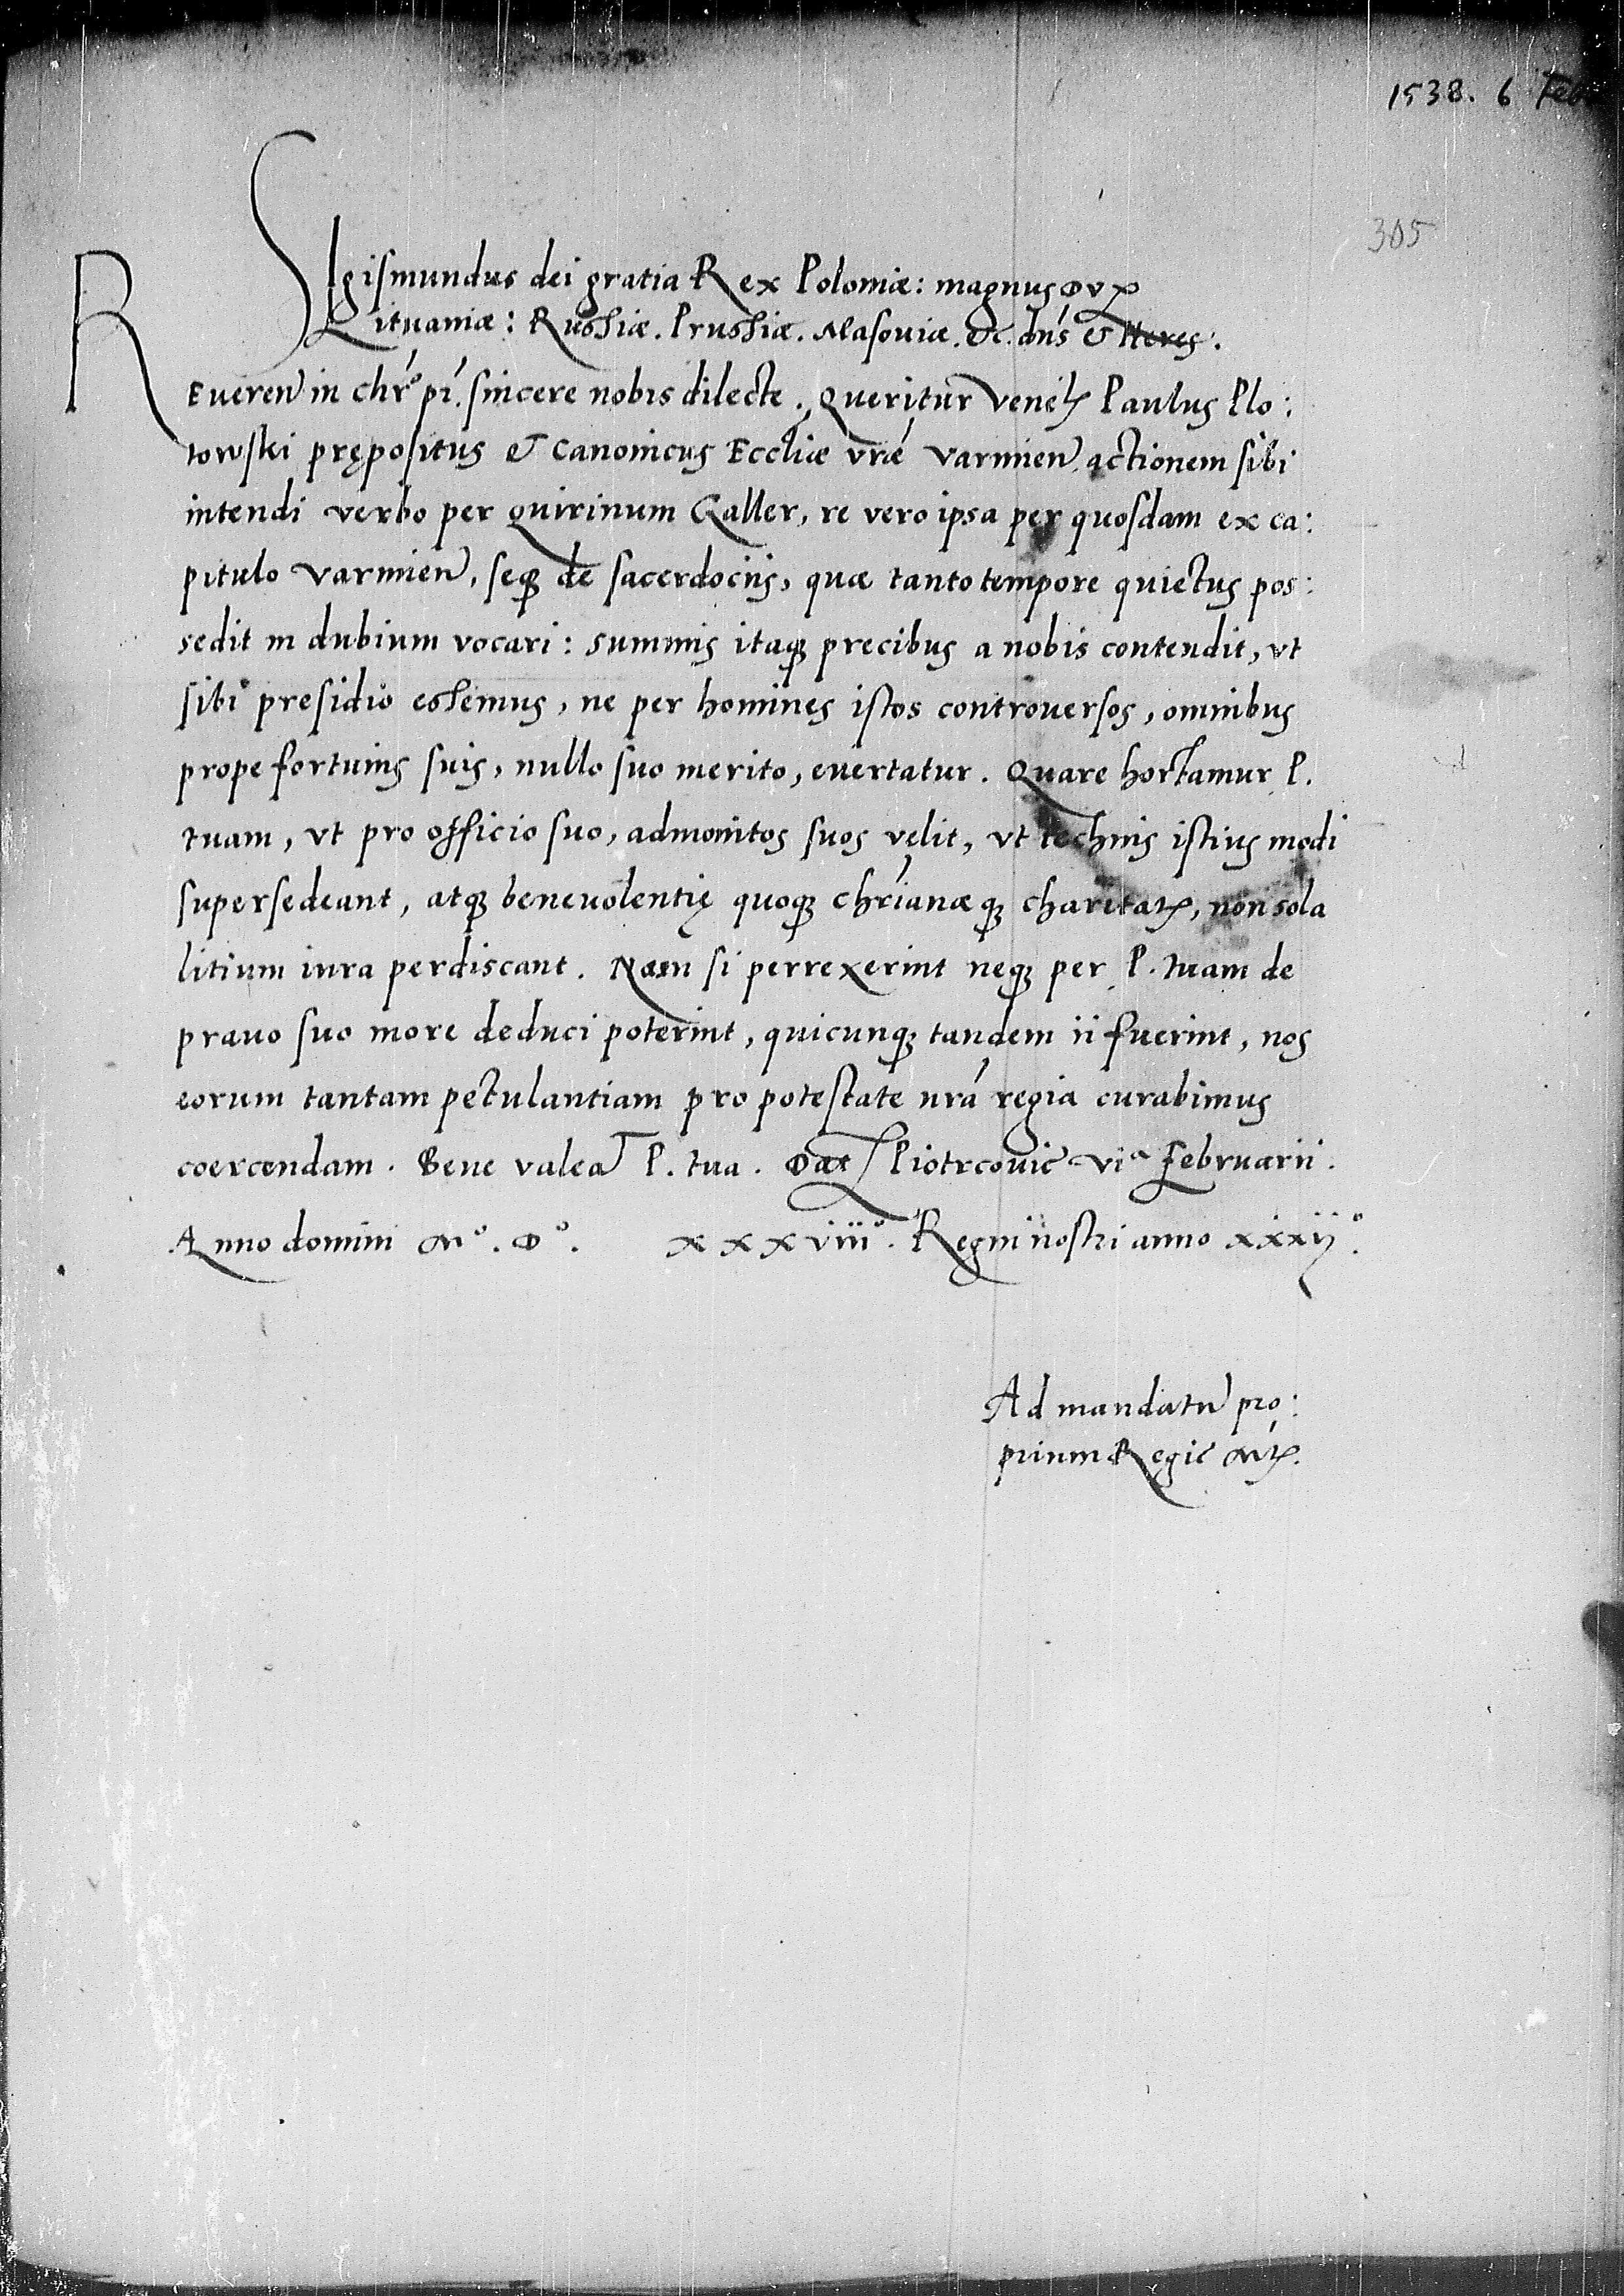 1538. 6 Feb
305
SIgismundus dei gratia Rex Poloniæ: magnus Dux
Lituaniæ: Russiæ. Prussiæ. Masoviæ. &c. dn̄s & Heres.
REueren̄ in chr̄o pr̄. sincere nobis dilecte. Queritur Venēlꝭ Paulus Plo:
towski prępositus & Canonicus Eccliæ vr̄æ Varmien̄. actionem sibi
intendi verbo per quirinum Galler, re vero ipsa per quosdam ex ca:
pitulo Varmien̄, seqꝫ de sacerdociis, quæ tanto tempore quietus pos:
sedit in dubium vocari: summis itaqꝫ precibus a nobis contendit, vt
sibi presidio essemus, ne per homines istos controversos, omnibus
prope fortunis suis, nullo suo merito, evertatur. Quare hortamur P.
tuam, vt pro officio suo, admonitos suos velit, vt technis istius modi
supersedeant, atqꝫ benevolentię quoqꝫ chr̄ianæqꝫ charitatꝭ, non sola
litium iura perdiscant. Nam si perrexerint neqꝫ per P. tuam de
pravo suo more deduci poterint, quicunqꝫ tandem ii fuerint, nos
eorum tantam petulantiam pro potestate nr̄a regia curabimus
coercendam. Bene valeat P. tua. Datꝭ Piotrcovie vi^a Februarii.
Anno domini Mº. Dº. xxxviiiº. Regni nostri anno xxxijº.
Ad mandatū pro:
prium Regie Mtꝭ.